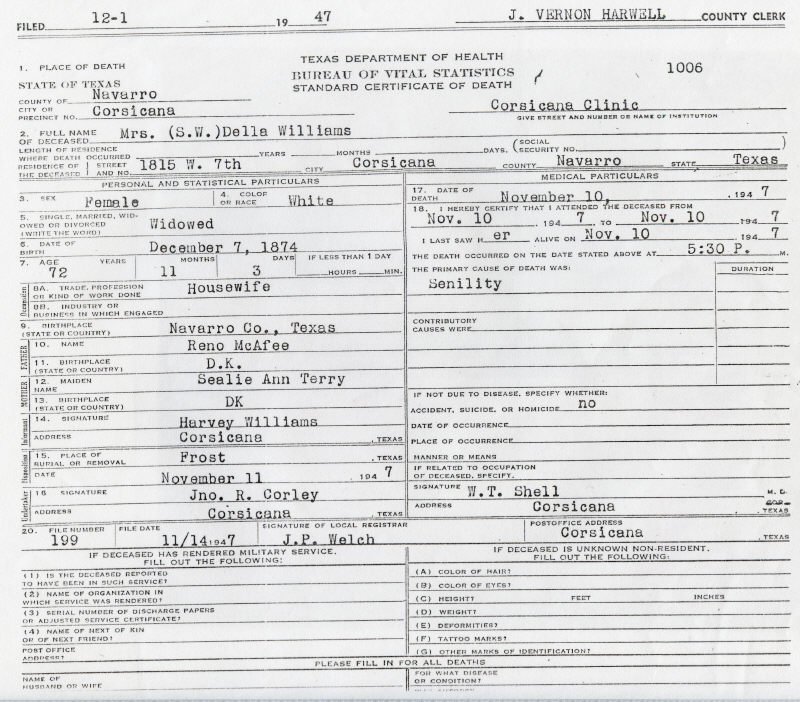 FILED 12-1 19 47 J. VERNON HARWELL COUNTY CLERK
TEXAS DEPARTMENT OF HEALTH
BUREAU OF VITAL STATISTICS
STANDARD CERTIFICATE OF DEATH
1006
1. PLACE OF DEATH
STATE OF TEXAS
COUNTY OF Navarro
CITY OR
PRECINCT NO. Corsicana
Corsicana Clinic
GIVE STREET AND NUMBER OR NAME OF INSTITUTION
2. FULL NAME
OF DECEASED Mrs. (S.W.)Della Williams
LENGTH OF RESIDENCE
WHERE DEATH OCCURRED YEARS MONTHS DAYS. (SOCIAL SECURITY NO. )
RESIDENCE OF THE DECEASED STREET AND NO. 1815 W. 7th CITY Corsicana COUNTY Navarro STATE Texas
PERSONAL AND STATISTICAL PARTICULARS
3. SEX Female 4. COLOR OR RACE White
5. SINGLE, MARRIED, WID-
OWED OR DIVORCED Widowed
(WRITE THE WORD)
6. DATE OF
BIRTH December 7, 1874
7. AGE YEARS MONTHS DAYS IF LESS THAN 1 DAY
72 11 3 HOURS MIN.
Occupation
8A. TRADE, PROFESSION
OR KIND OF WORK DONE Housewife
8B. INDUSTRY OR
BUSINESS IN WHICH ENGAGED
9. BIRTHPLACE
(STATE OR COUNTRY) Navarro Co., Texas
FATHER
10. NAME Reno McAfee
11. BIRTHPLACE
(STATE OR COUNTRY) D.K.
MOTHER
12. MAIDEN
NAME Sealie Ann Terry
13. BIRTHPLACE
(STATE OR COUNTRY) DK
Informant
14. SIGNATURE Harvey Williams
ADDRESS Corsicana , TEXAS
Disposition
15. PLACE OF
BURIAL OR REMOVAL Frost , TEXAS
DATE November 11 194 7
Undertaker
16 SIGNATURE Jno. R. Corley
ADDRESS Corsicana , TEXAS
MEDICAL PARTICULARS
17. DATE OF
DEATH November 10, , 194 7
18. I HEREBY CERTIFY THAT I ATTENDED THE DECEASED FROM
Nov. 10 194 7 TO Nov. 10 194 7
I LAST SAW H er ALIVE ON Nov. 10 194 7
THE DEATH OCCURRED ON THE DATE STATED ABOVE AT 5:30 P. M.
THE PRIMARY CAUSE OF DEATH WAS: DURATION
Senility
CONTRIBUTORY
CAUSES WERE
IF NOT DUE TO DISEASE, SPECIFY WHETHER:
ACCIDENT, SUICIDE, OR HOMICIDE no
DATE OF OCCURRENCE
PLACE OF OCCURRENCE
MANNER OR MEANS
IF RELATED TO OCCUPATION
OF DECEASED, SPECIFY.
SIGNATURE W.T. Shell M. D.
ADDRESS Corsicana , TEXAS
20. FILE NUMBER FILE DATE SIGNATURE OF LOCAL REGISTRAR POSTOFFICE ADDRESS
199 11/14 1947 J.P. Welch Corsicana , TEXAS
IF DECEASED HAS RENDERED MILITARY SERVICE.
FILL OUT THE FOLLOWING:
(1) IS THE DECEASED REPORTED
TO HAVE BEEN IN SUCH SERVICE?
(2) NAME OF ORGANIZATION IN
WHICH SERVICE WAS RENDERED?
(3) SERIAL NUMBER OF DISCHARGE PAPERS
OR ADJUSTED SERVICE CERTIFICATE?
(4) NAME OF NEXT OF KIN
OR OF NEXT FRIEND?
POST OFFICE
ADDRESS?
IF DECEASED IS UNKNOWN NON-RESIDENT.
FILL OUT THE FOLLOWING:
(A) COLOR OF HAIR?
(B) COLOR OF EYES?
(C) HEIGHT? FEET INCHES
(D) WEIGHT?
(E) DEFORMITIES?
(F) TATTOO MARKS?
(G) OTHER MARKS OF IDENTIFICATION?
PLEASE FILL IN FOR ALL DEATHS
NAME OF
HUSBAND OR WIFE
FOR WHAT DISEASE
OR CONDITION?